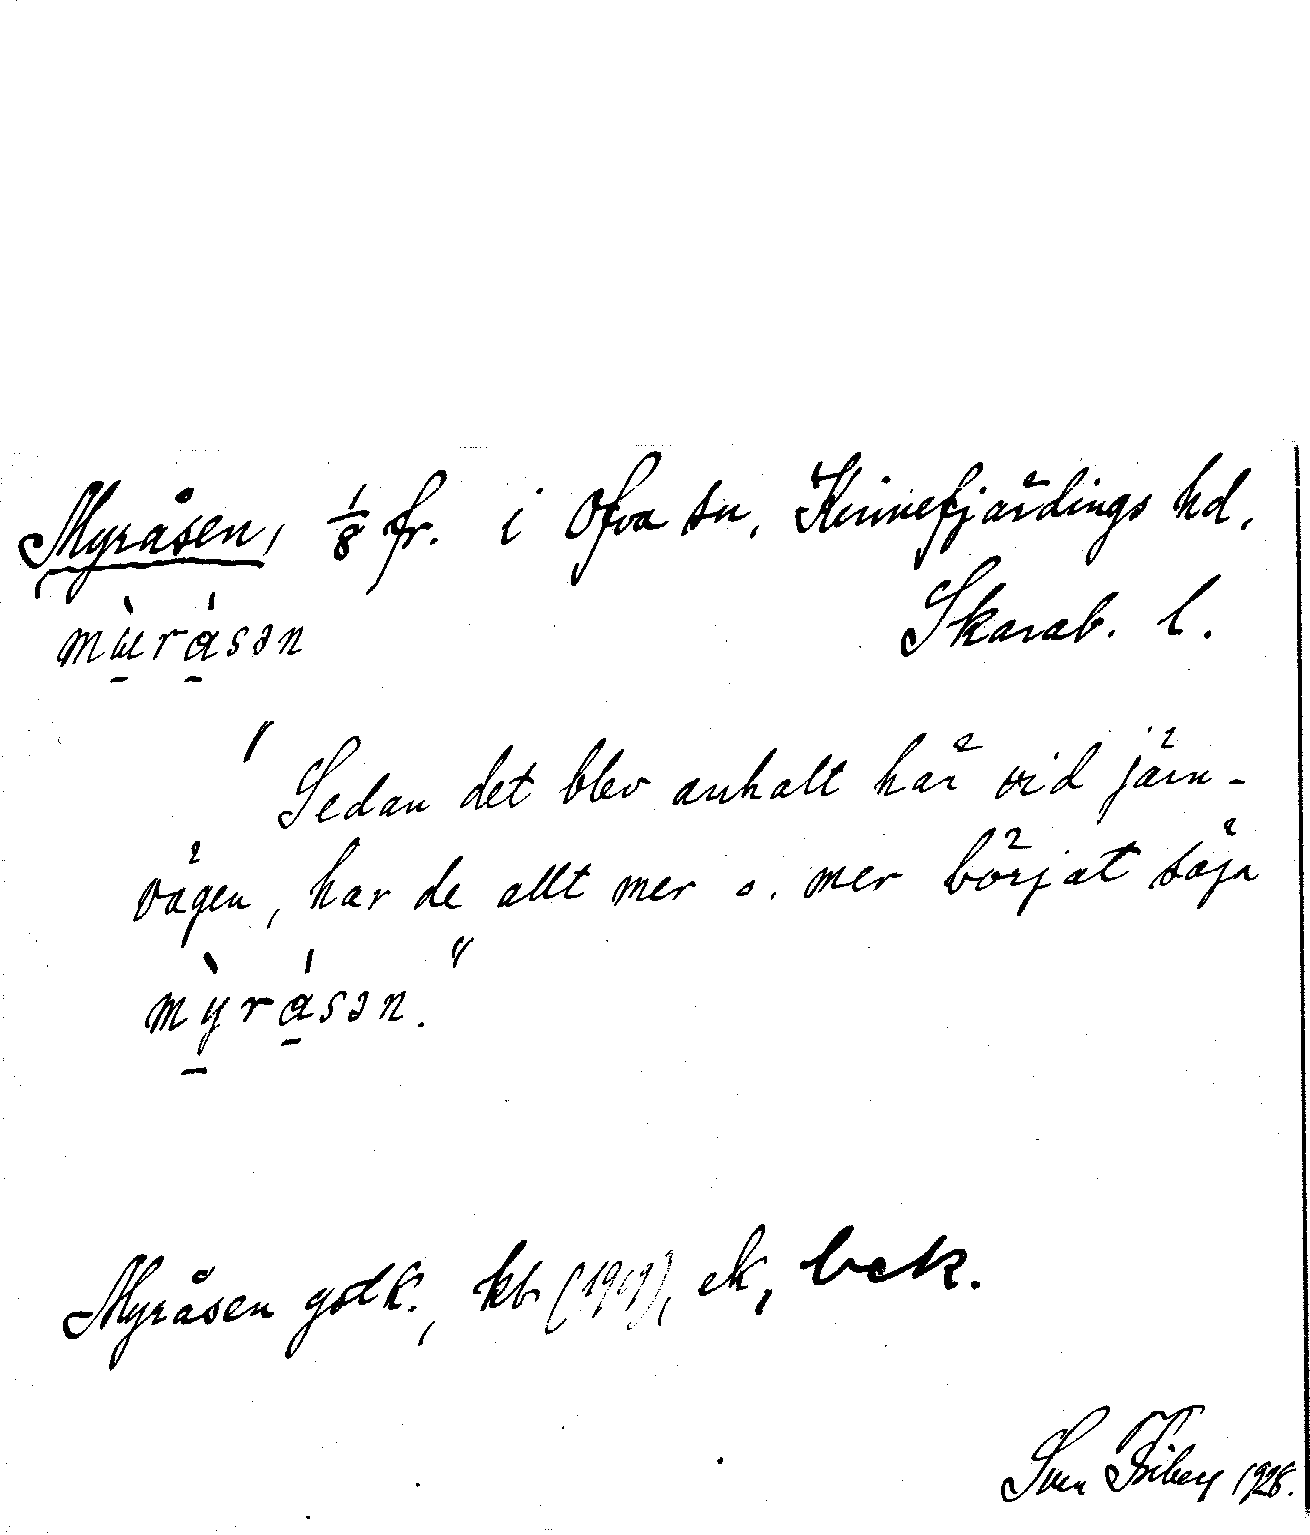 Myråsen, 1/8 fr. i Ofva sn, Kinnefjärdings hd.
Skarab. l.
mùrásən
"Sedan det blev anhalt här vid järn-
vägen, har de allt mer o. mer börjat säja
mỳrásən."
Myråsen godk., kb (1919), ek, bek.
Sven Friberg 1928.